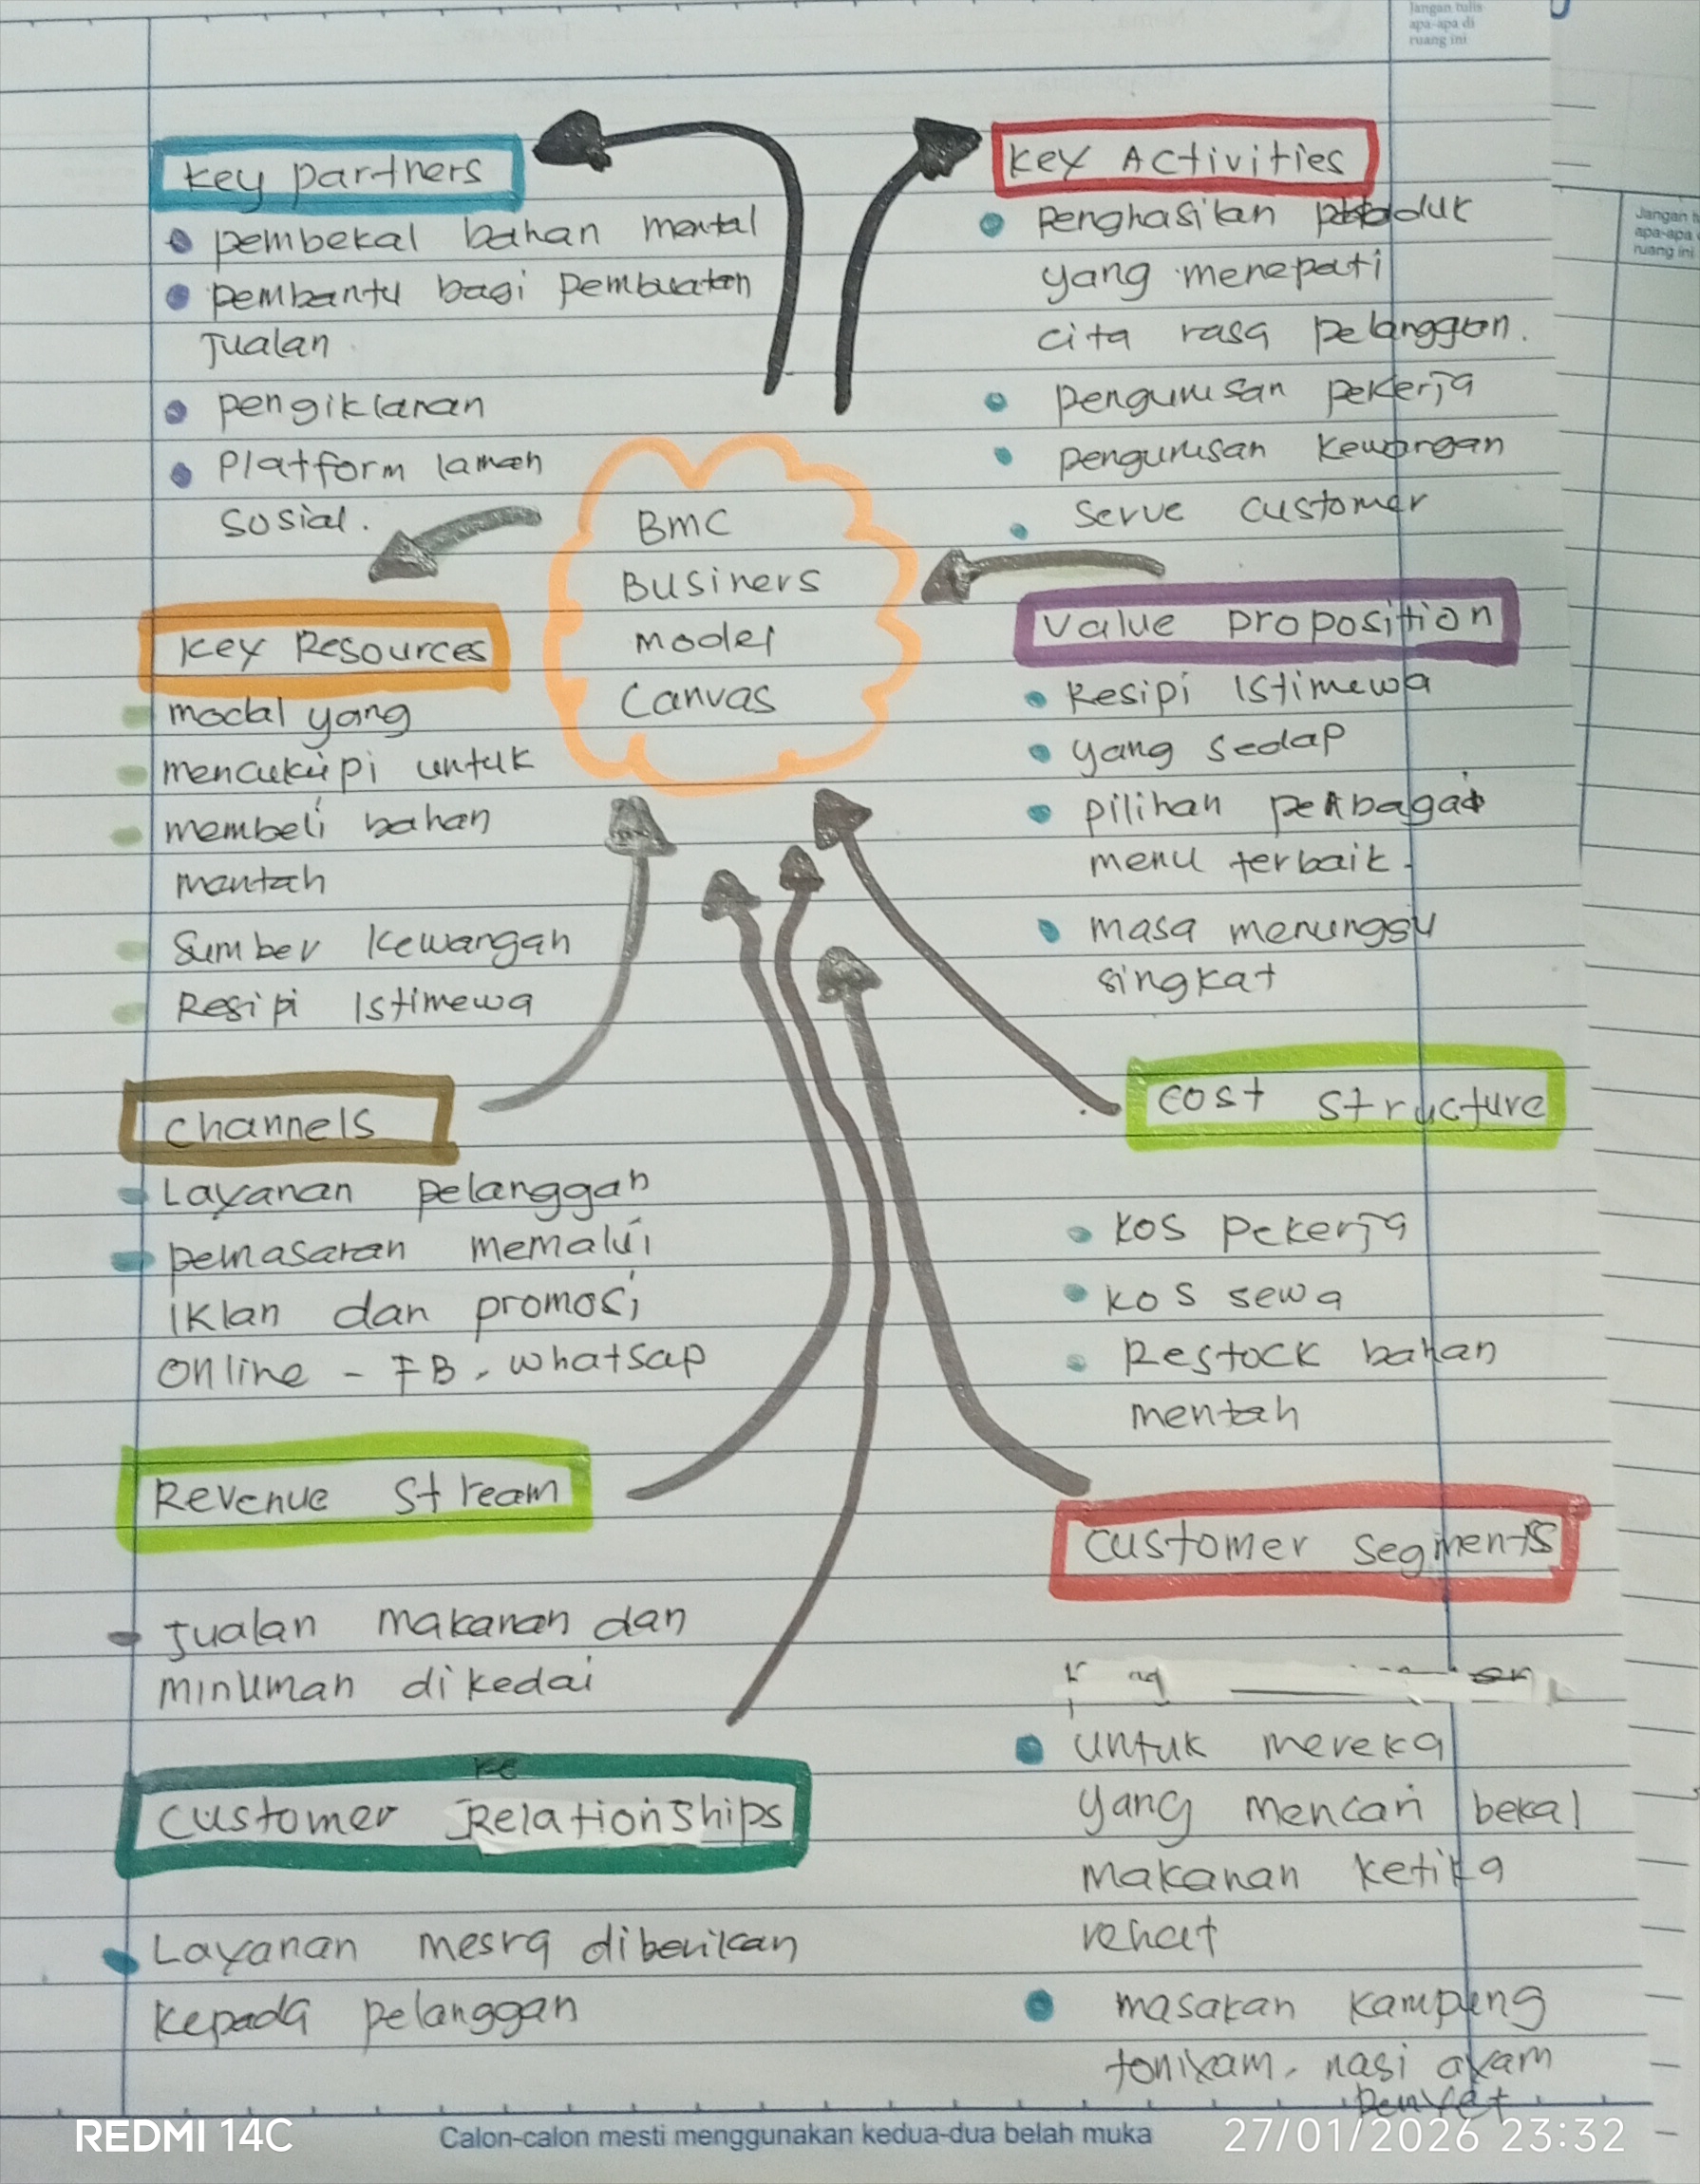 Jangan tulis
apa-apa di
ruang ini
Key partners
pembekal bahan mental
pembantu bagi pembuatan
Jualan
pengiklanan
Platform laman
sosial.
Key Activities
penghasilan produk
yang menepati
cita rasa pelanggan.
pengurusan pekerja
pengurusan kewangan
Serve customer
BMC
Businers
model
Canvas
Key Resources
modal yang
mencukupi untuk
membeli bahan
mentah
Sumber kewangan
Resipi Istimewa
Value proposition
Resipi Istimewa
yang sedap
pilihan perbagai
menu terbaik.
masa menunggu
singkat
Channels
Layanan pelanggan
pemasaran memalui
iklan dan promosi
online - FB, whatsap
Cost structure
kos pekerja
kos sewa
Restock bahan
mentah
Revenue Stream
Jualan makanan dan
minuman dikedai
Customer Relationships
Layanan mesra diberikan
kepada pelanggan
Customer Segments
untuk mereka
yang mencari bekal
makanan ketika
rehat
masakan kampung
nasi ayam
penyet
Jangan
apa-apa
ruang ini
Calon-calon mesti menggunakan kedua-dua belah muka
REDMI 14C
27/01/2026 23:32